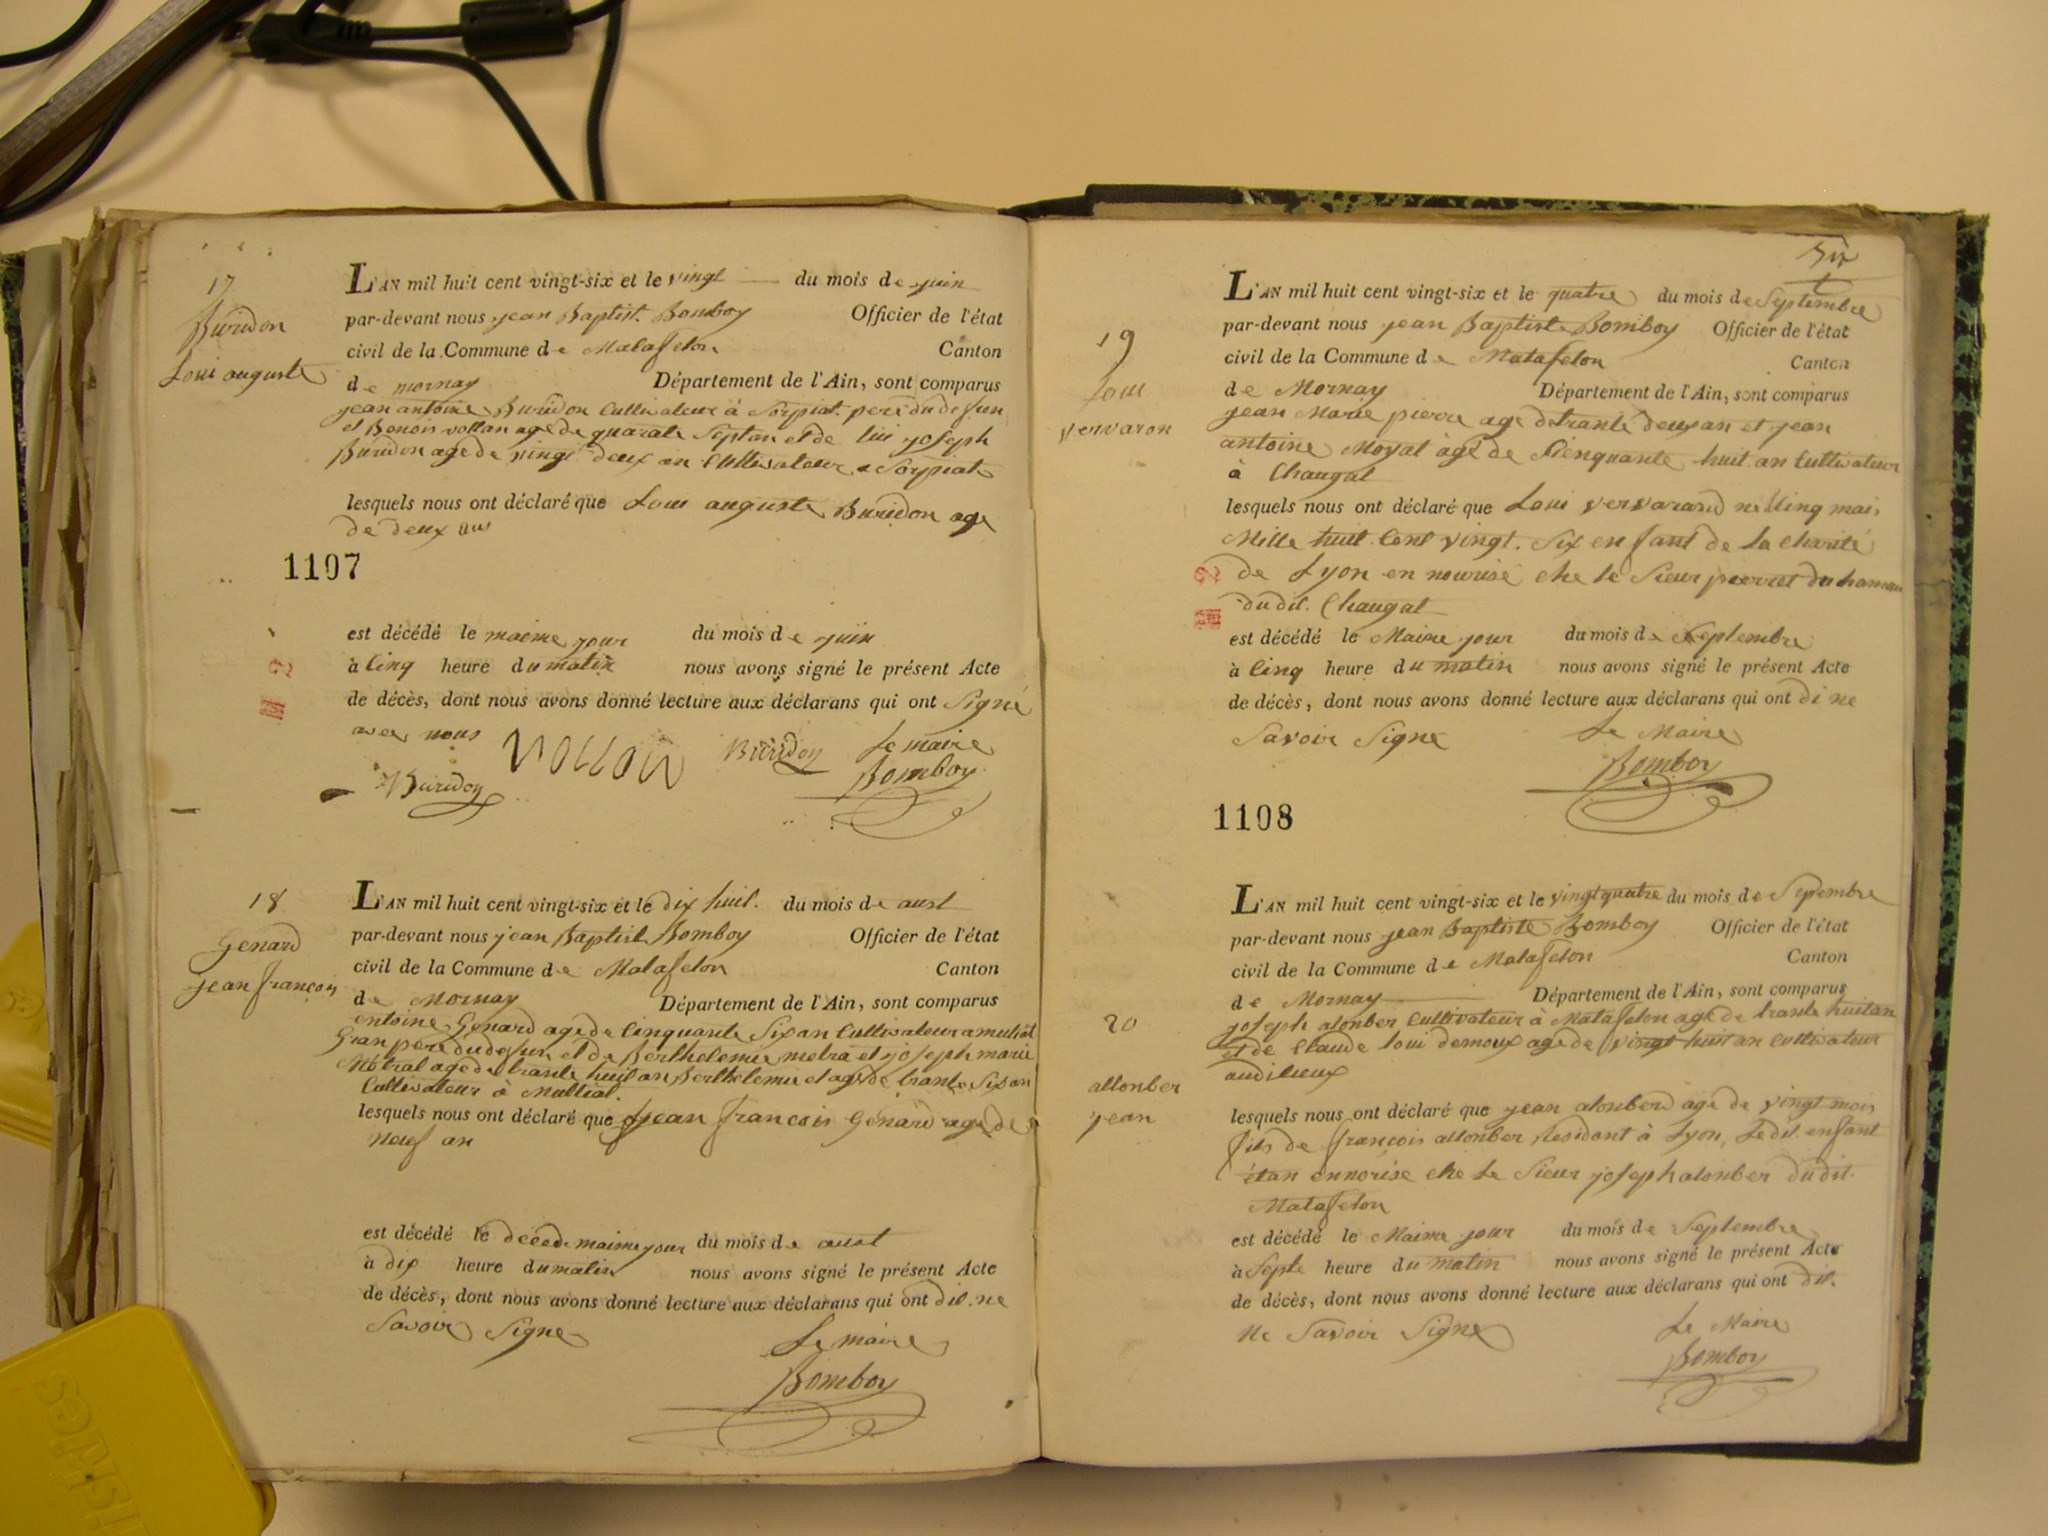 17
Buridon
Loui auguste
L'AN mil huit cent vingt-six et le vingt du mois de juin
par-devant nous jean Baptist. Bomboy Officier de l'état
civil de la Commune de Matafelon Canton
de mornay Département de l'Ain, sont comparus
jean antoine Buridon Cultivateur à Corpiat pere du defun
et Benois vollan age de quarate Septan et de lui joseph
Buridon age de vingt deux an Cultivateur a Corpiat
lesquels nous ont déclaré que Loui auguste Buridon age
de deux an
1107
est décédé le maime jour du mois de juin
à Cinq heure du matin nous avons signé le présent Acte
de décès, dont nous avons donné lecture aux déclarans qui ont Signé
avec nous
VOLLON Buridon Le maire
Buridon Bomboy
18
Genard
jean françois
L'AN mil huit cent vingt-six et le dix huit. du mois de aust
par-devant nous jean Baptist Bomboy Officier de l'état
civil de la Commune de Matafelon Canton
de Mornay Département de l'Ain, sont comparus
entoine Genard age de Cinquante Six an Cultivateur a
Gran pere du defun et de Berthelemie metra et joseph marie
Métral age de trante huit an Berthelemie et age de trante Six an
Cultivateur à Multial.
lesquels nous ont déclaré que jean françois Génard age de
neuf an
est décédé le décédé maime jour du mois de aust
à dix heure du matin nous avons signé le présent Acte
de décès, dont nous avons donné lecture aux déclarans qui ont dit ne
Savoir Signe
Le maire
Bomboy
Six
19
Loui
vervaron
L'AN mil huit cent vingt-six et le quatre du mois de Septembre
par-devant nous jean Baptiste Bomboy Officier de l'état
civil de la Commune de Matafelon Canton
de Mornay Département de l'Ain, sont comparus
jean Marie pierre age de trante deux an et jean
antoine Moyat àgé de Cienquante huit an Cultivateur
à Chaugat
lesquels nous ont déclaré que Loui vervarand né Cinq mai
Mille huit Cent vingt. Six enfant de la charité
de Lyon en nourise che le Sieur pierret du hameau
dudit. Chaugat
est décédé le Maime jour du mois de Septembre
à Cinq heure du matin nous avons signé le présent Acte
de décès, dont nous avons donné lecture aux déclarans qui ont di ne
Savoir Signe
Le Maire
Bomboy
1108
20
allonber
jean
L'AN mil huit cent vingt-six et le vingt quatre du mois de Septembre
par-devant nous jean Baptiste Bomboy Officier de l'état
civil de la Commune de Matafelon Canton
de Mornay Département de l'Ain, sont comparus
joseph alonber Cultivateur à Matafelon age de trante huitan
et de Claude loui demoux age de vingt huit an Cultivateur
audilieux
lesquels nous ont déclaré que jean alonberd age de vingt mois
fils de françois allonber Residant à Lyon, Ledit enfant
étan ennorise che Le Sieur joseph alonber dudit.
Matafelon
est décédé le Maime jour du mois de Septembre
à Septe heure du matin nous avons signé le présent Acte
de décès, dont nous avons donné lecture aux déclarans qui ont dit.
Ne Savoir Signe
Le Maire
Bomboy